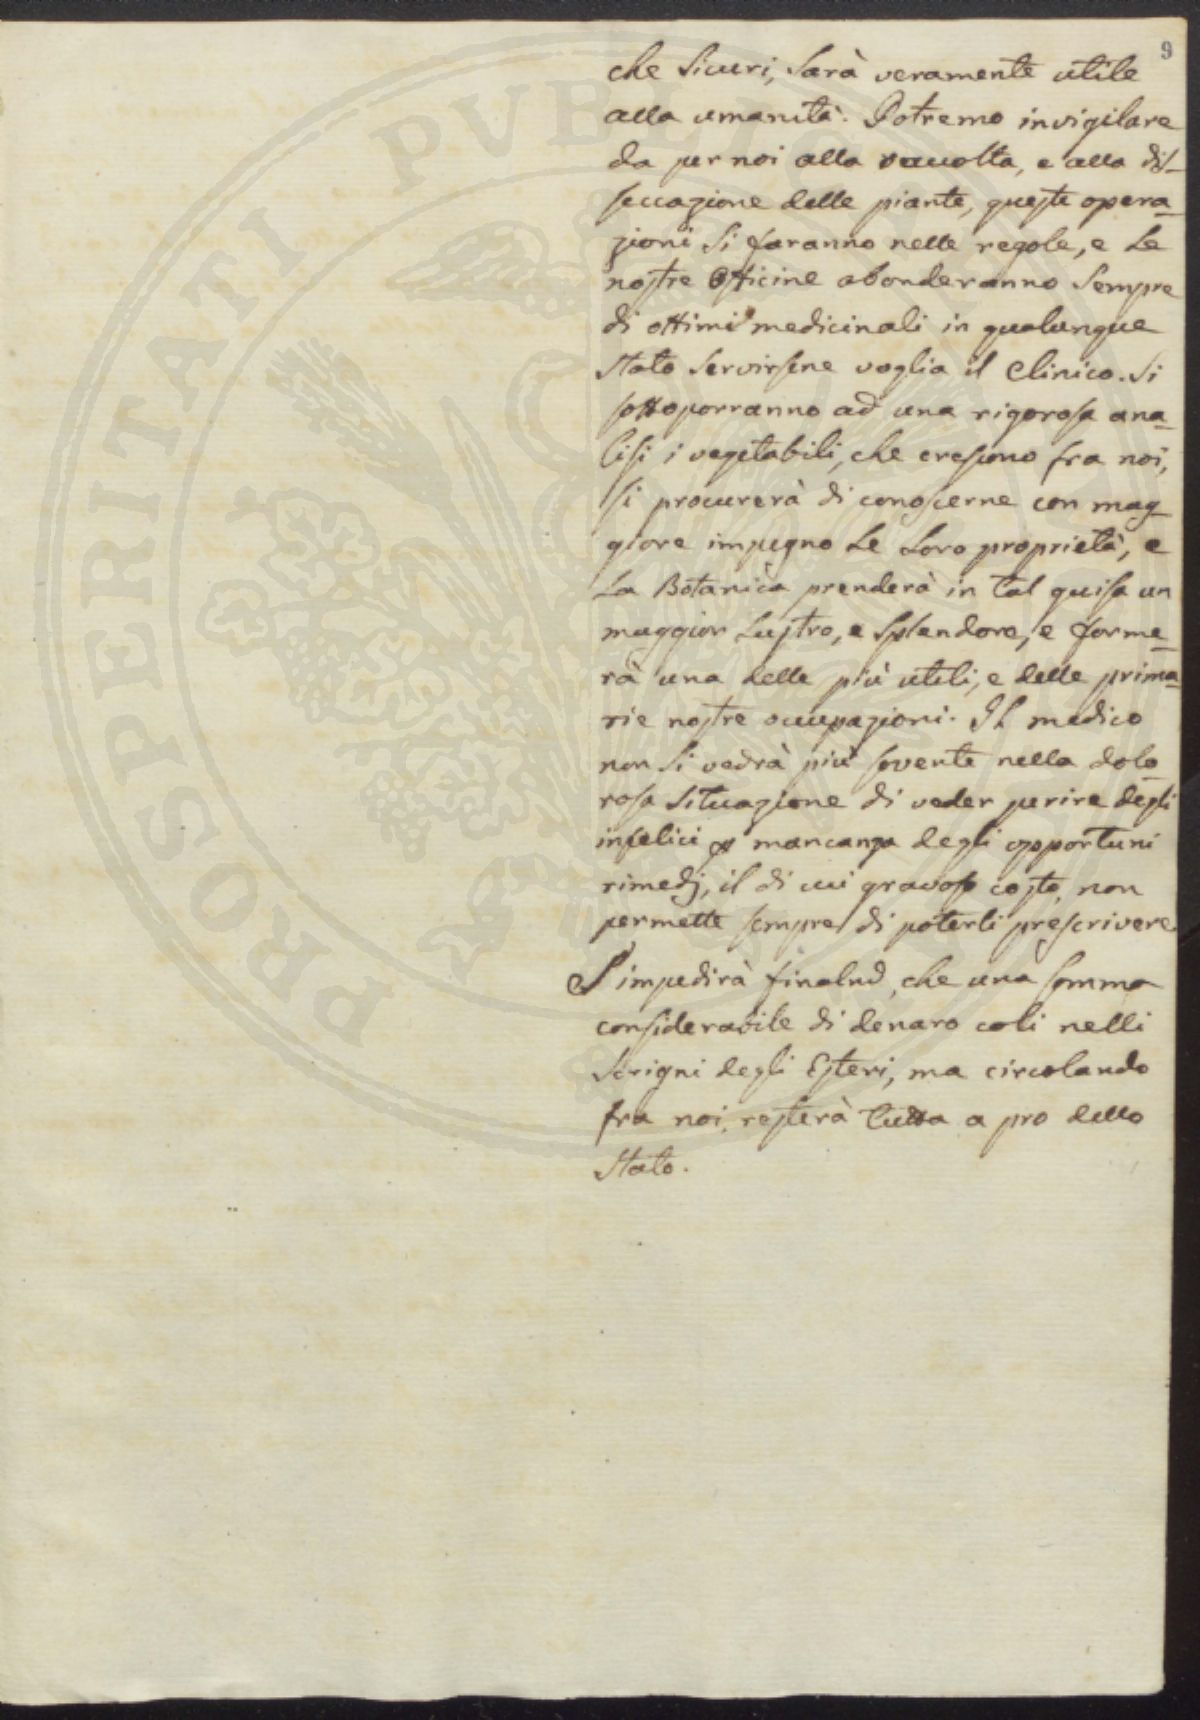 9
che sicuri, sarà veramente utile
alla umanità. Potremo invigilare
da per noi alla raccolta, e alla dis-
seccazione delle piante, queste opera-
zioni si faranno nelle regole, e le
nostre Officine abonderanno sempre
di ottimi medicinali in qualunque
stato servirsene voglia il Clinico. Si
sottoporranno ad una rigorosa ana-
lisi i vegetabili, che crescono fra noi,
si procurerà di conoscerne con mag-
giore impegno le loro proprietà, e
la Botanica prenderà in tal guisa un
maggior lustro, e splendore, e forme-
rà una delle più utili, e delle prima-
rie nostre occupazioni. Il medico
non si vedrà più sovente nella dolo-
rosa situazione di veder perire degli
infelici p mancanza degli opportuni
rimedj, il di cui gravoso costo, non
permette sempre di poterli prescrivere.
S'impedirà finalmd, che una somma
considerabile di denaro coli nelli
scrigni degli Esteri, ma circolando
fra noi, resterà tutta a pro dello
Stato.
PROSPERITATI PVBL